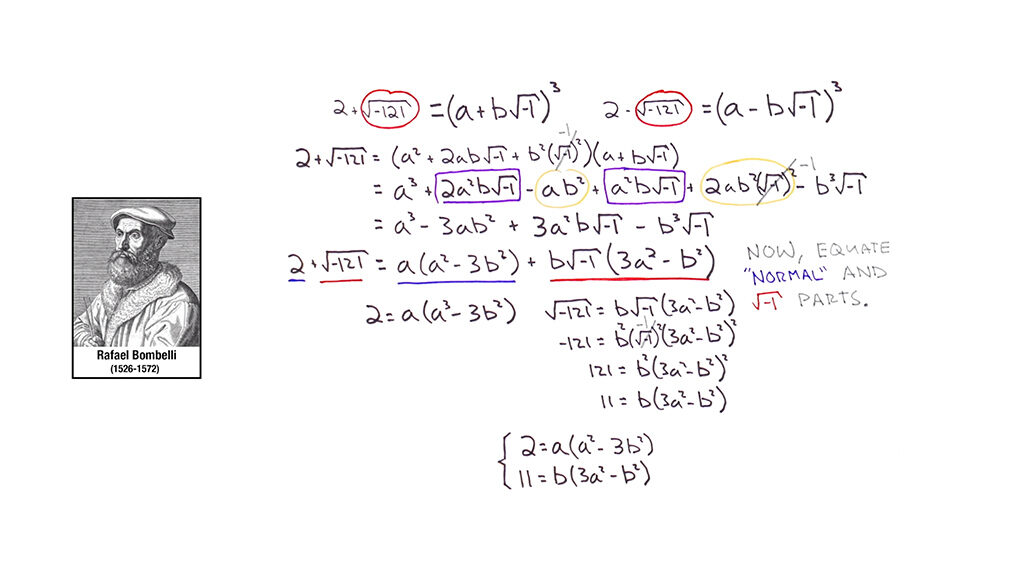 2 + √-121 = (a + b√-1)³ 2 - √-121 = (a - b√-1)³
2 + √-121 = (a² + 2ab√-1 + b²(√-1)²)(a + b√-1) -1
= a³ + 2a²b√-1 - ab² + a²b√-1 + 2ab²(√-1)² - b³√-1 -1
= a³ - 3ab² + 3a²b√-1 - b³√-1
2 + √-121 = a(a² - 3b²) + b√-1 (3a² - b²)
NOW, EQUATE
"NORMAL" AND
√-1 PARTS.
2 = a(a³ - 3b²) √-121 = b√-1 (3a² - b²)
-121 = b²(√-1)²(3a² - b²)² -1
121 = b²(3a² - b²)²
11 = b(3a² - b²)
{ 2 = a(a² - 3b²)
11 = b(3a² - b²)
Rafael Bombelli
(1526-1572)